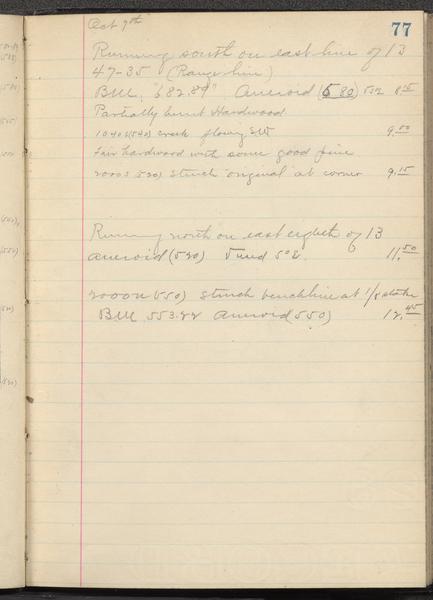 77
Oct 9th
Running south on east line of 13
47-35 (Range line)
BM. "682.89" Aneroid (680) 8 15
Partially burnt Hardwood
1040 S (540) creek flowing SW 9.00
Fair hardwood with some good pine
2000 S 520) struck original at corner 9.15
Running north on east eighth of 13
aneroid (520) 11.50
2000 N 550) struck benchline at 1/8 stake
BM 553.22 Aneroid (550) 12.45